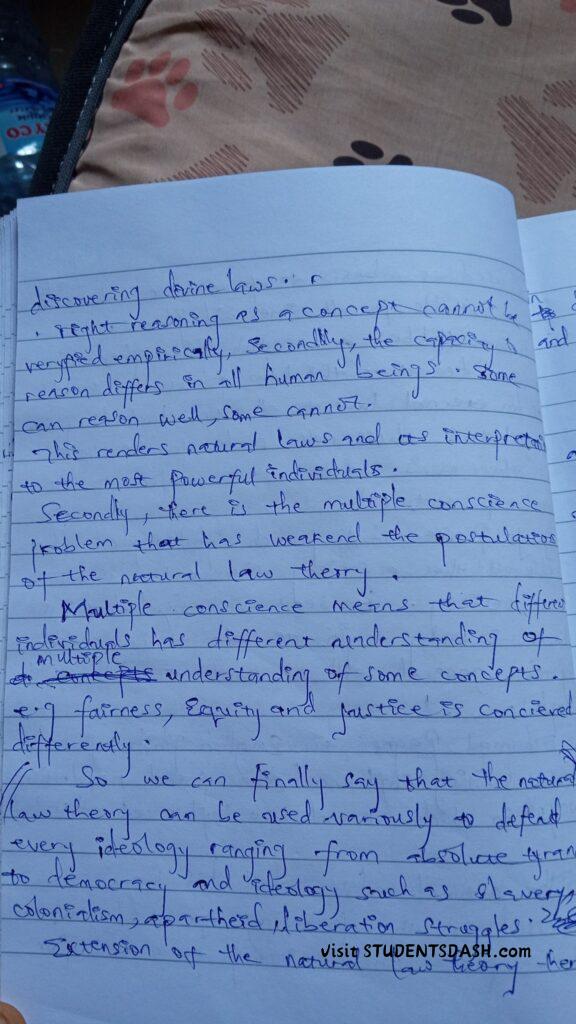 discovering devine laws.
. right reasoning as a concept cannot be
veryfied empirically, Secondlly, the capacity to and
reason differs in all human beings. Some
can reason well, some cannot.
This renders natural laws and its interpretati
to the most powerful individuals.
Secondly, there is the multiple conscience
problem that has weakend the postulation
of the natural law theory.
Multiple conscience means that differen
individuals has different understanding of
multiple
concepts understanding of some concepts.
e.g fairness, Equity and justice is concieved
differently.
So we can finally say that the natural
law theory can be used variously to defend
every ideology ranging from absolute tyran
to democracy and ideology such as slavery,
colonialism, apartheid, liberation struggles.
Extension of the natural law theory her
visit STUDENTSDASH.com